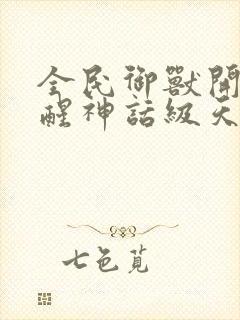 全民御獸開
醒神話級天
七色覓